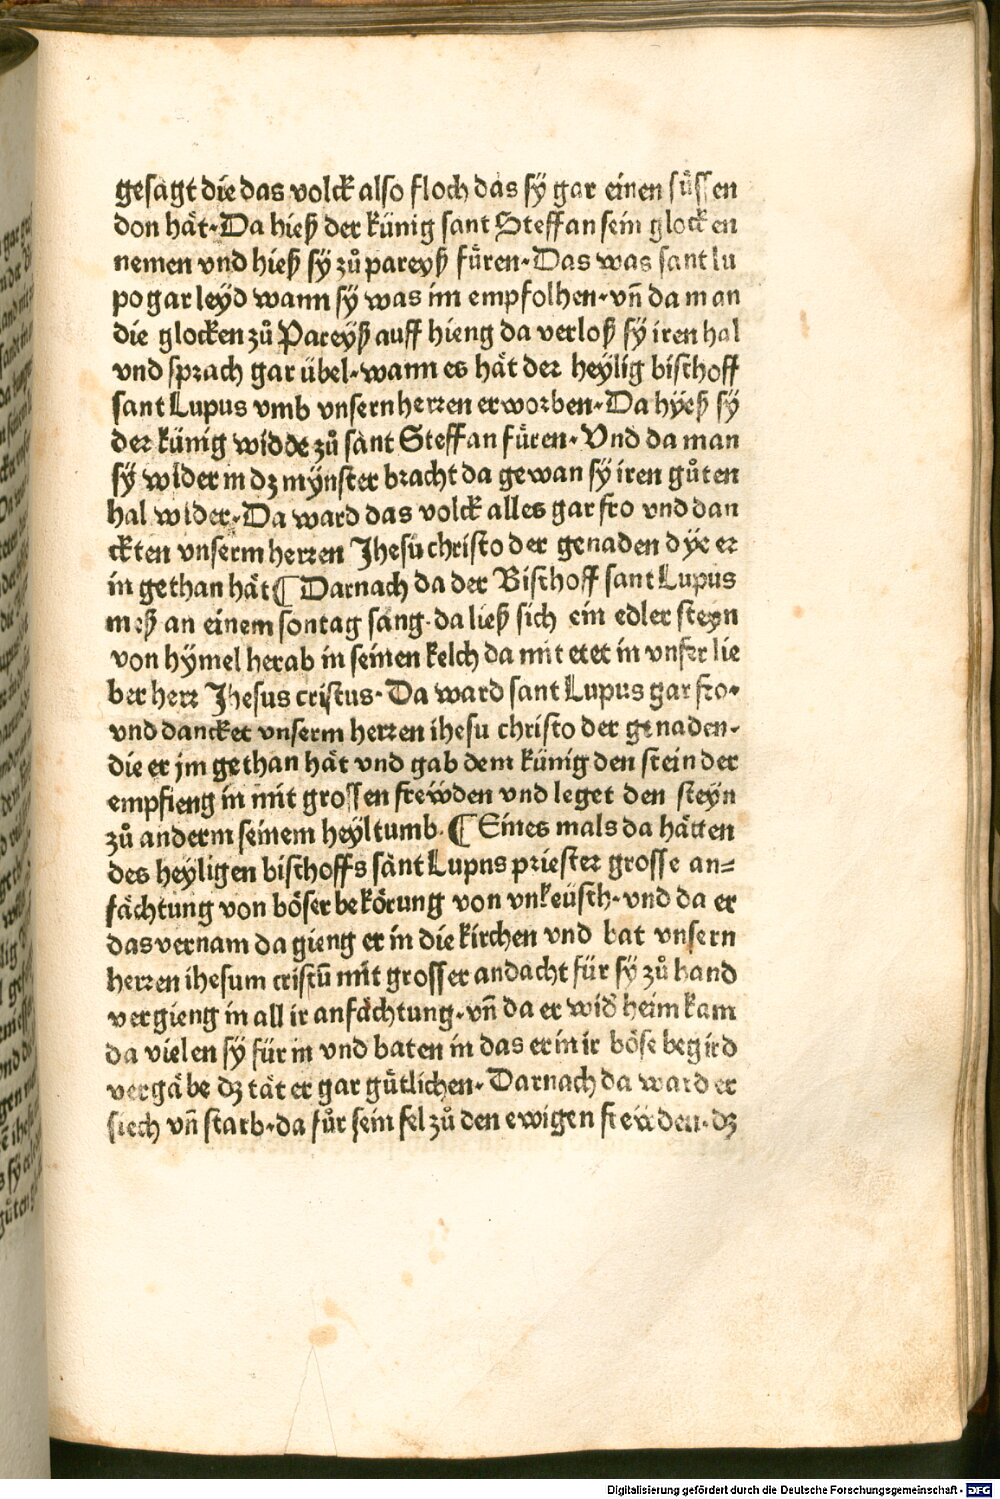 gesagt die das volck also floch das sÿ gar einen sűssen
don hät. Da hieß der künig sant Steffan sein glocken
nemen vnd hieß sÿ zů pareyß fűren. Das was sant lu
po gar leyd wann sÿ was im empfolhen. vñ da man
die glocken zů Pareyß auff hieng da verloß sÿ iren hal
vnd sprach gar übel. wann es hät der heylig bischoff
sant Lupus vmb vnsern herren erworben. Da hyeß sÿ
der künig widde zů sant Steffan fűren. Vnd da man
sÿ wider in dz mÿnster bracht da gewan sÿ iren gůten
hal wider. Da ward das volck alles gar fro vnd dan
ckten vnserm herren Jhesu christo der genaden dye er
in gethan hät ¶ Darnach da der Bischoff sant Lupus
meß an einem sontag sang. da ließ sich ein edler steyn
von hÿmel herab in seinen kelch da mit etet in vnser lie
ber herr Jhesus cristus. Da ward sant Lupus gar fro.
vnd dancket vnserm herren ihesu christo der genaden.
die er jm gethan hät vnd gab dem künig den stein der
empfieng in mit grossen frewden vnd leget den steyn
zů anderm seinem heyltumb. ¶ Eines mals da hätten
des heyligen bischoffs sant Lupns priester grosse an=
fächtung von böser bekörung von vnkeüsch. vnd da er
das vernam da gieng er in die kirchen vnd bat vnsern
herren ihesum cristū mit grosser andacht für sÿ zů hand
vergieng in all ir anfächtung. vñ da er wid heim kam
da vielen sÿ für in vnd baten in das er in ir böse begird
vergäbe dz tät er gar gütlichen. Darnach da ward er
siech vñ starb. da fůr sein sel zů den ewigen frewden. dz
Digitalisierung gefördert durch die Deutsche Forschungsgemeinschaft - DFG